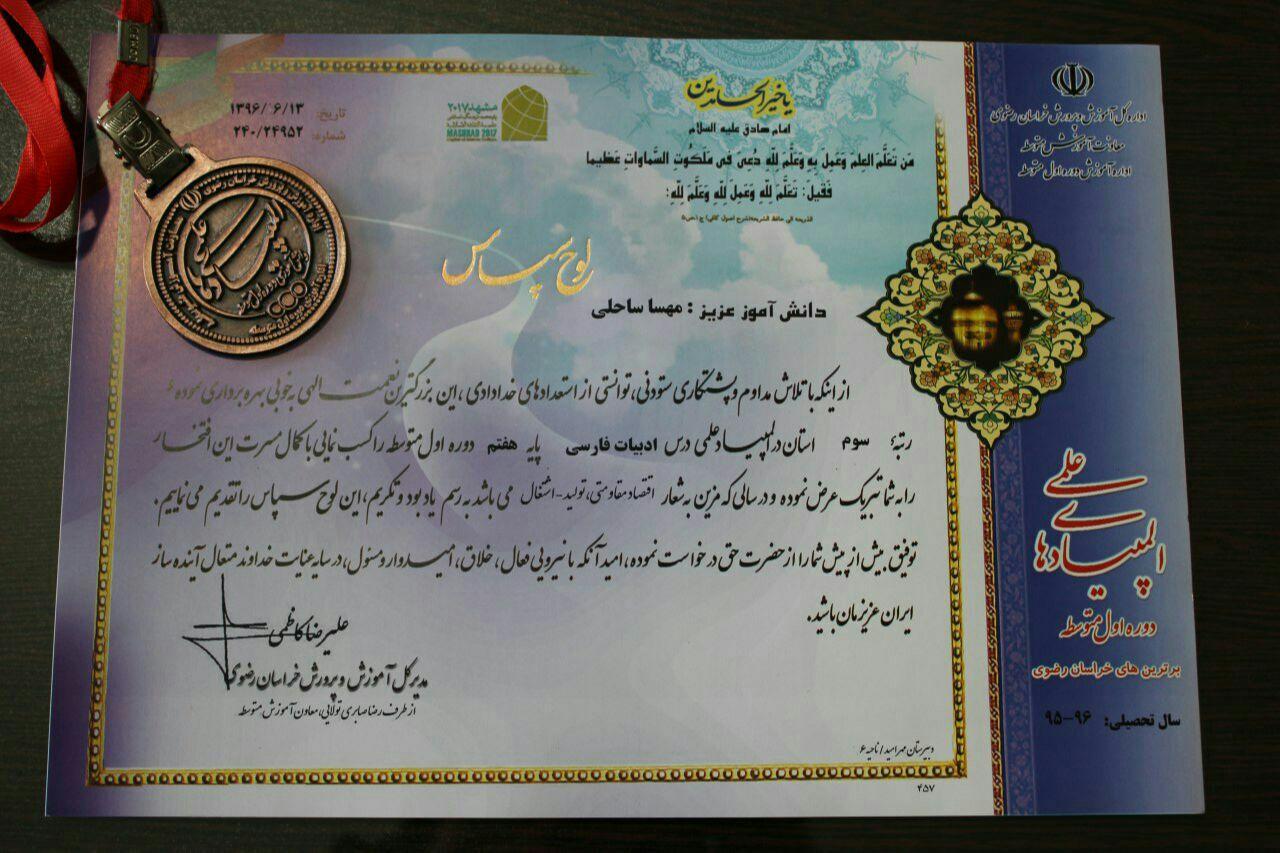 یا خیر الحامدین
امام صادق علیه السلام
مَن تَعَلَّمَ العِلمَ وَعَمِلَ بِهِ وَعَلَّمَ لِلّهِ دُعِیَ فی مَلَکوتِ السَّماواتِ عَظیما
فَقیلَ: تَعَلَّمَ لِلّهِ وَعَمِلَ لِلّهِ وَعَلَّمَ لِلّهِ:
تاریخ: ۱۳۹۶/۰۶/۱۳
شماره: ۲۴۰/۲۴۹۵۲
مشهد ۲۰۱۷
MASHHAD 2017
لوح سپاس
دانش آموز عزیز : مهسا ساحلی
از اینکه با تلاش مداوم و پشتکاری ستودنی، توانستی از استعدادهای خدادادی ، این بزرگترین نعمت الهی به خوبی بهره برداری نموده و
رتبهٔ سوم استان در المپیاد علمی درس ادبیات فارسی پایه هفتم دوره اول متوسطه را کسب نمایی با کمال مسرت این افتخار
را به شما تبریک عرض نموده و در سالی که مزین به شعار اقتصاد مقاومتی، تولید-اشتغال می باشد به رسم یادبود و تکریم، این لوح سپاس را تقدیم می نماییم.
توفیق بیش از پیش شما را از حضرت حق درخواست نموده، امید آنکه با نیرویی فعال، خلاق، امیدوار و مسئول، در سایه عنایت خداوند متعال آینده ساز
ایران عزیزمان باشید.
علیرضا کاظمی
مدیر کل آموزش و پرورش خراسان رضوی
از طرف رضا صابری تولایی، معاون آموزش متوسطه
دبیرستان مهر امید / ناحیه ۶
۴۵۷
اداره کل آموزش و پرورش خراسان رضوی
معاونت آموزش متوسطه
اداره آموزش دوره اول متوسطه
المپیادهای علمی
دوره اول متوسطه
برترین های خراسان رضوی
سال تحصیلی: ۹۶-۹۵